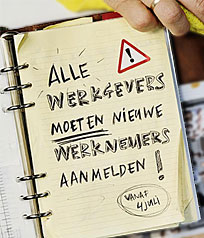 ALLE
WERKGEVERS
MOETEN NIEUWE
WERKNEMERS
AANMELDEN!
VANAF
4 JULI